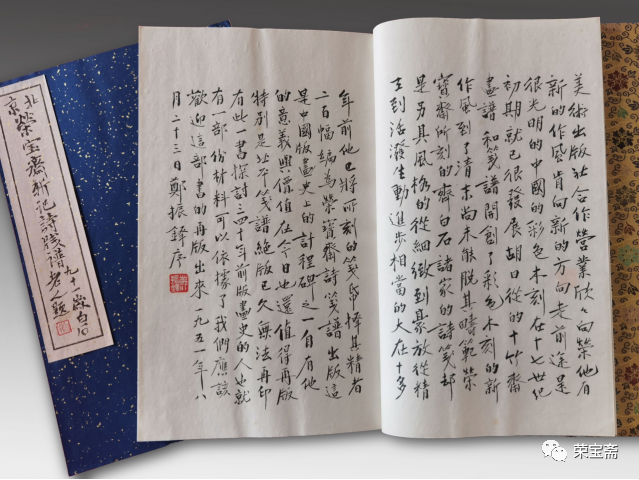 美術出版社合作營業欣々向榮他有
新的作風肯向新的方向走前途是
很光明的中國的彩色木刻在十七世紀
初期就已很發展胡曰從的十竹齋
畫譜和箋譜開創了彩色木刻的新
作風到了清末尚未能脫其疇範榮
寶齋所刻的齊白石諸家的詩箋卻
是另具風格的從細緻到豪放從精
工到活潑生動進步相當的大在十多
年前他已將所刻的箋帋擇其精者
二百幅編為榮寶齋詩箋譜出版這
是中國版畫史上的計程碑之一自有他
的意義與價值在今日也還值得再版
特別是北平箋譜絕版已久無法再印
有此一書探討三四十年前版畫史的人也就
有一部份材料可以依據了我們應該
歡迎這部書的再版出來一九五一年八
月二十三日鄭振鐸序
北京
榮宝齋新記詩牋譜
九十一歲白石
老人題
荣宝斋